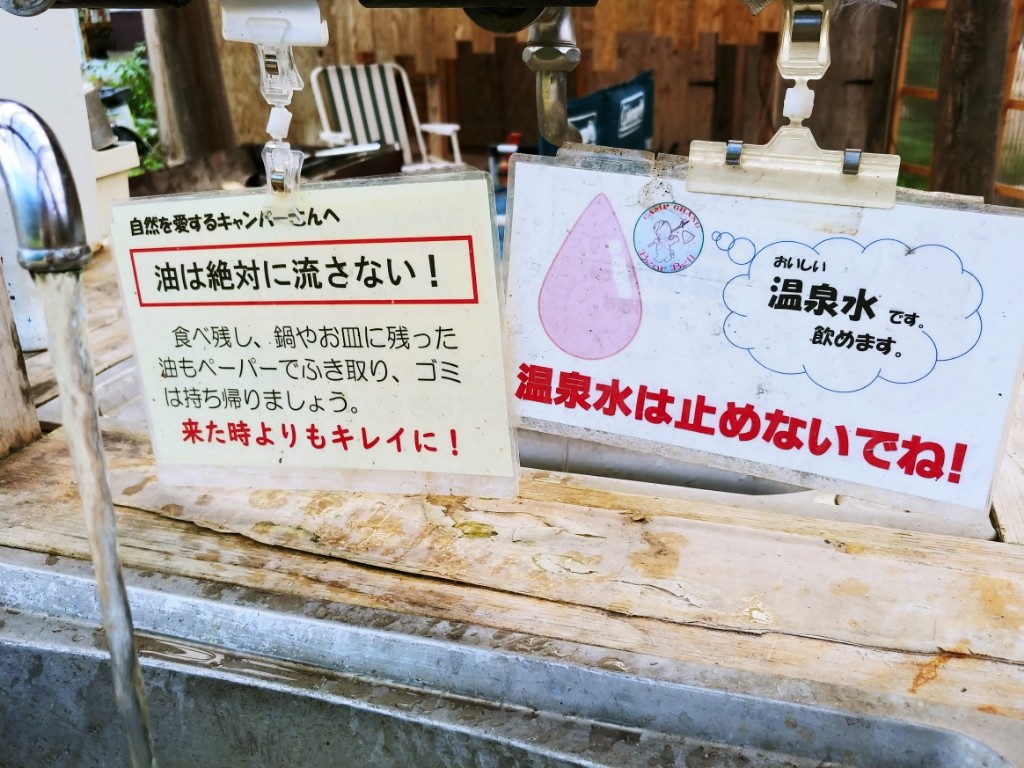 自然を愛するキャンパーさんへ
油は絶対に流さない！
食べ残し、鍋やお皿に残った
油もペーパーでふき取り、ゴミ
は持ち帰りましょう。
来た時よりもキレイに！
CAMP GRAND
Bear Bell
おいしい
温泉水です。
飲めます。
温泉水は止めないでね!
Coleman